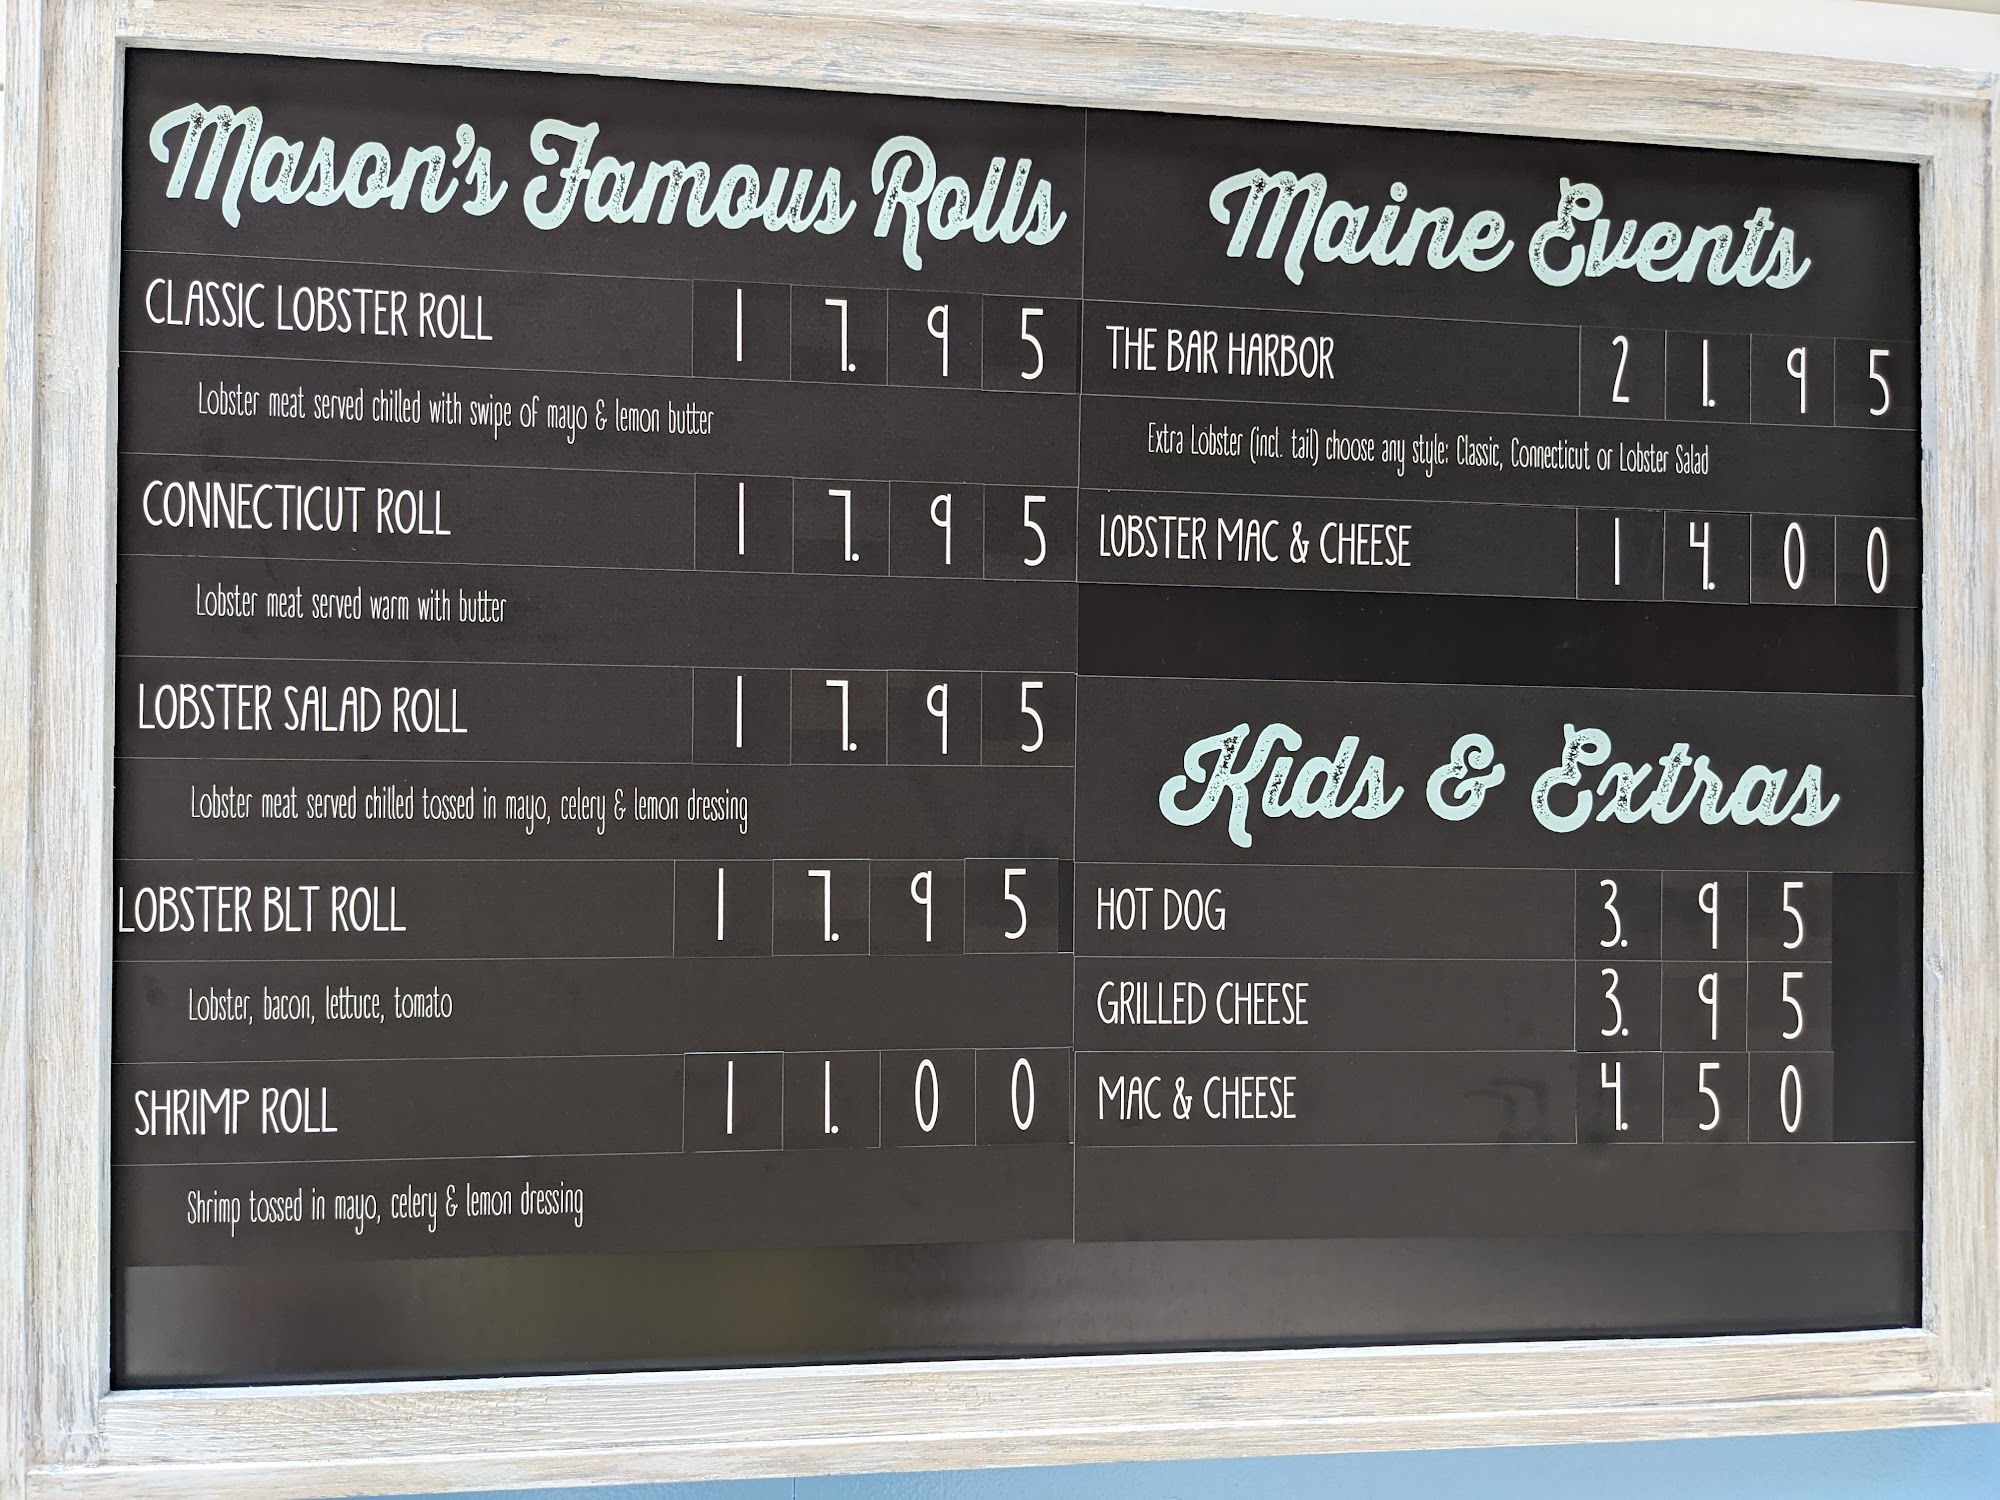 Mason's Famous Rolls
CLASSIC LOBSTER ROLL 17.95
Lobster meat served chilled with swipe of mayo & lemon butter
CONNECTICUT ROLL 17.95
Lobster meat served warm with butter
LOBSTER SALAD ROLL 17.95
Lobster meat served chilled tossed in mayo, celery & lemon dressing
LOBSTER BLT ROLL 17.95
Lobster, bacon, lettuce, tomato
SHRIMP ROLL 11.00
Shrimp tossed in mayo, celery & lemon dressing
Maine Events
THE BAR HARBOR 21.95
Extra Lobster (incl. tail) choose any style: Classic, Connecticut or Lobster Salad
LOBSTER MAC & CHEESE 14.00
Kids & Extras
HOT DOG 3.95
GRILLED CHEESE 3.95
MAC & CHEESE 4.50